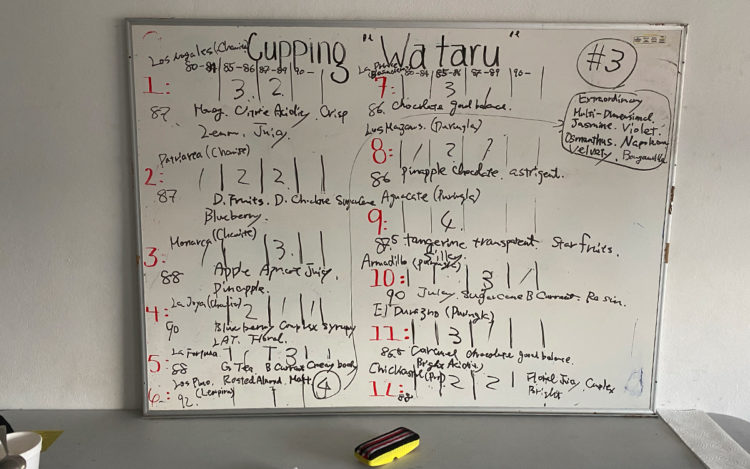 Cupping "Wataru"
#3
Los Nogales (Chanite)
80-84 85-86 87-89 90-
1: 3 2
87 Citric Acidity Crisp
Lemon. Juicy.
Patriarca (Chanite)
2: / 2 2
87 D. Fruits. D. Chocolove Sugarcane
Blueberry.
Monarca (Chanite)
3: / 3
88 Apple Apricot Juicy.
Pineapple.
4: La Joya
2 / /
90 Blueberry Complex syrupy
LAT. Floral.
5: La Fortuna
/ 1 3
88 G. Tea B Currant Creamy body
6: Los Pino. Rosted Almond
92. (Lempira) 4
80-84 85-86 87-89 90-
7: 3 /
86. Chocolate good balance.
Los Mazous. (Paringla)
8: / 2 /
86 pinapple chocolate. astrigent.
Aguacate (Paringla)
9: 4.
87.5 tangerine transparent Star fruits.
Silky.
Armadillo (Paringla)
10: 3 /
90 Juicy. Sugarcane B Currant. Rasin.
El Durazno (Paringla)
11: 3 /
86.5 Caramel chocolate good balance.
Bright Acidity
12: 2 2 1 Floral Juicy Complex
88. Bright
Extraordinary
Multi-Dimensional
Jasmine. Violet.
Osmanthus. Napoleon
Velvety.